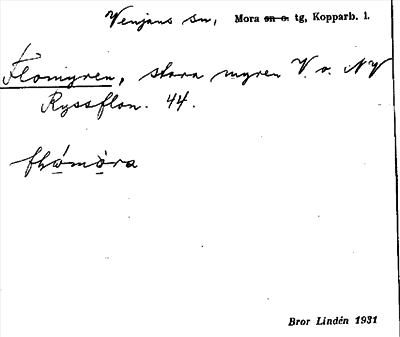 Venjans sn, Mora sn o. tg, Kopparb. l.
Flomyren, stora myren V. o. NV
Ryssflon. 44.
Bror Lindén 1931